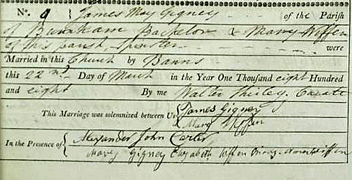 No. 9 James May Gigney of the Parish
of Burnham Bachelor & Mary Wiffen
of this parish Spinster were
Married in this Church by Banns
this 22nd Day of March in the Year One Thousand eight Hundred
and eight By me Walter Curate
This Marriage was solemnized between Us James Gigney
Mary Wiffen
In the Presence of Alexander John Carter
Mary Gigney Elizabeth Wiffen